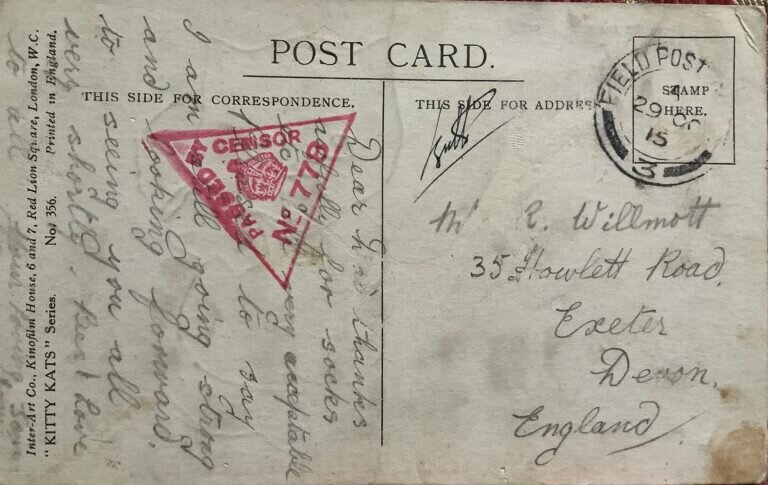 POST CARD.
THIS SIDE FOR CORRESPONDENCE.
THIS SIDE FOR ADDRESS
STAMP
HERE.
FIELD POST
29 OC
15
3
PASSED BY
CENSOR
No. 778
Mr E. Willmott
35 Howlett Road,
Exeter
Devon.
England
Dear thanks
awfully for socks
very acceptable
to say
I am all going strong
and looking forward
to seeing you all
very shortly. Best Love
to all
Inter-Art Co., Kinofilm House, 6 and 7, Red Lion Square, London, W.C.
"KITTY KATS" Series. No. 356. Printed in England.